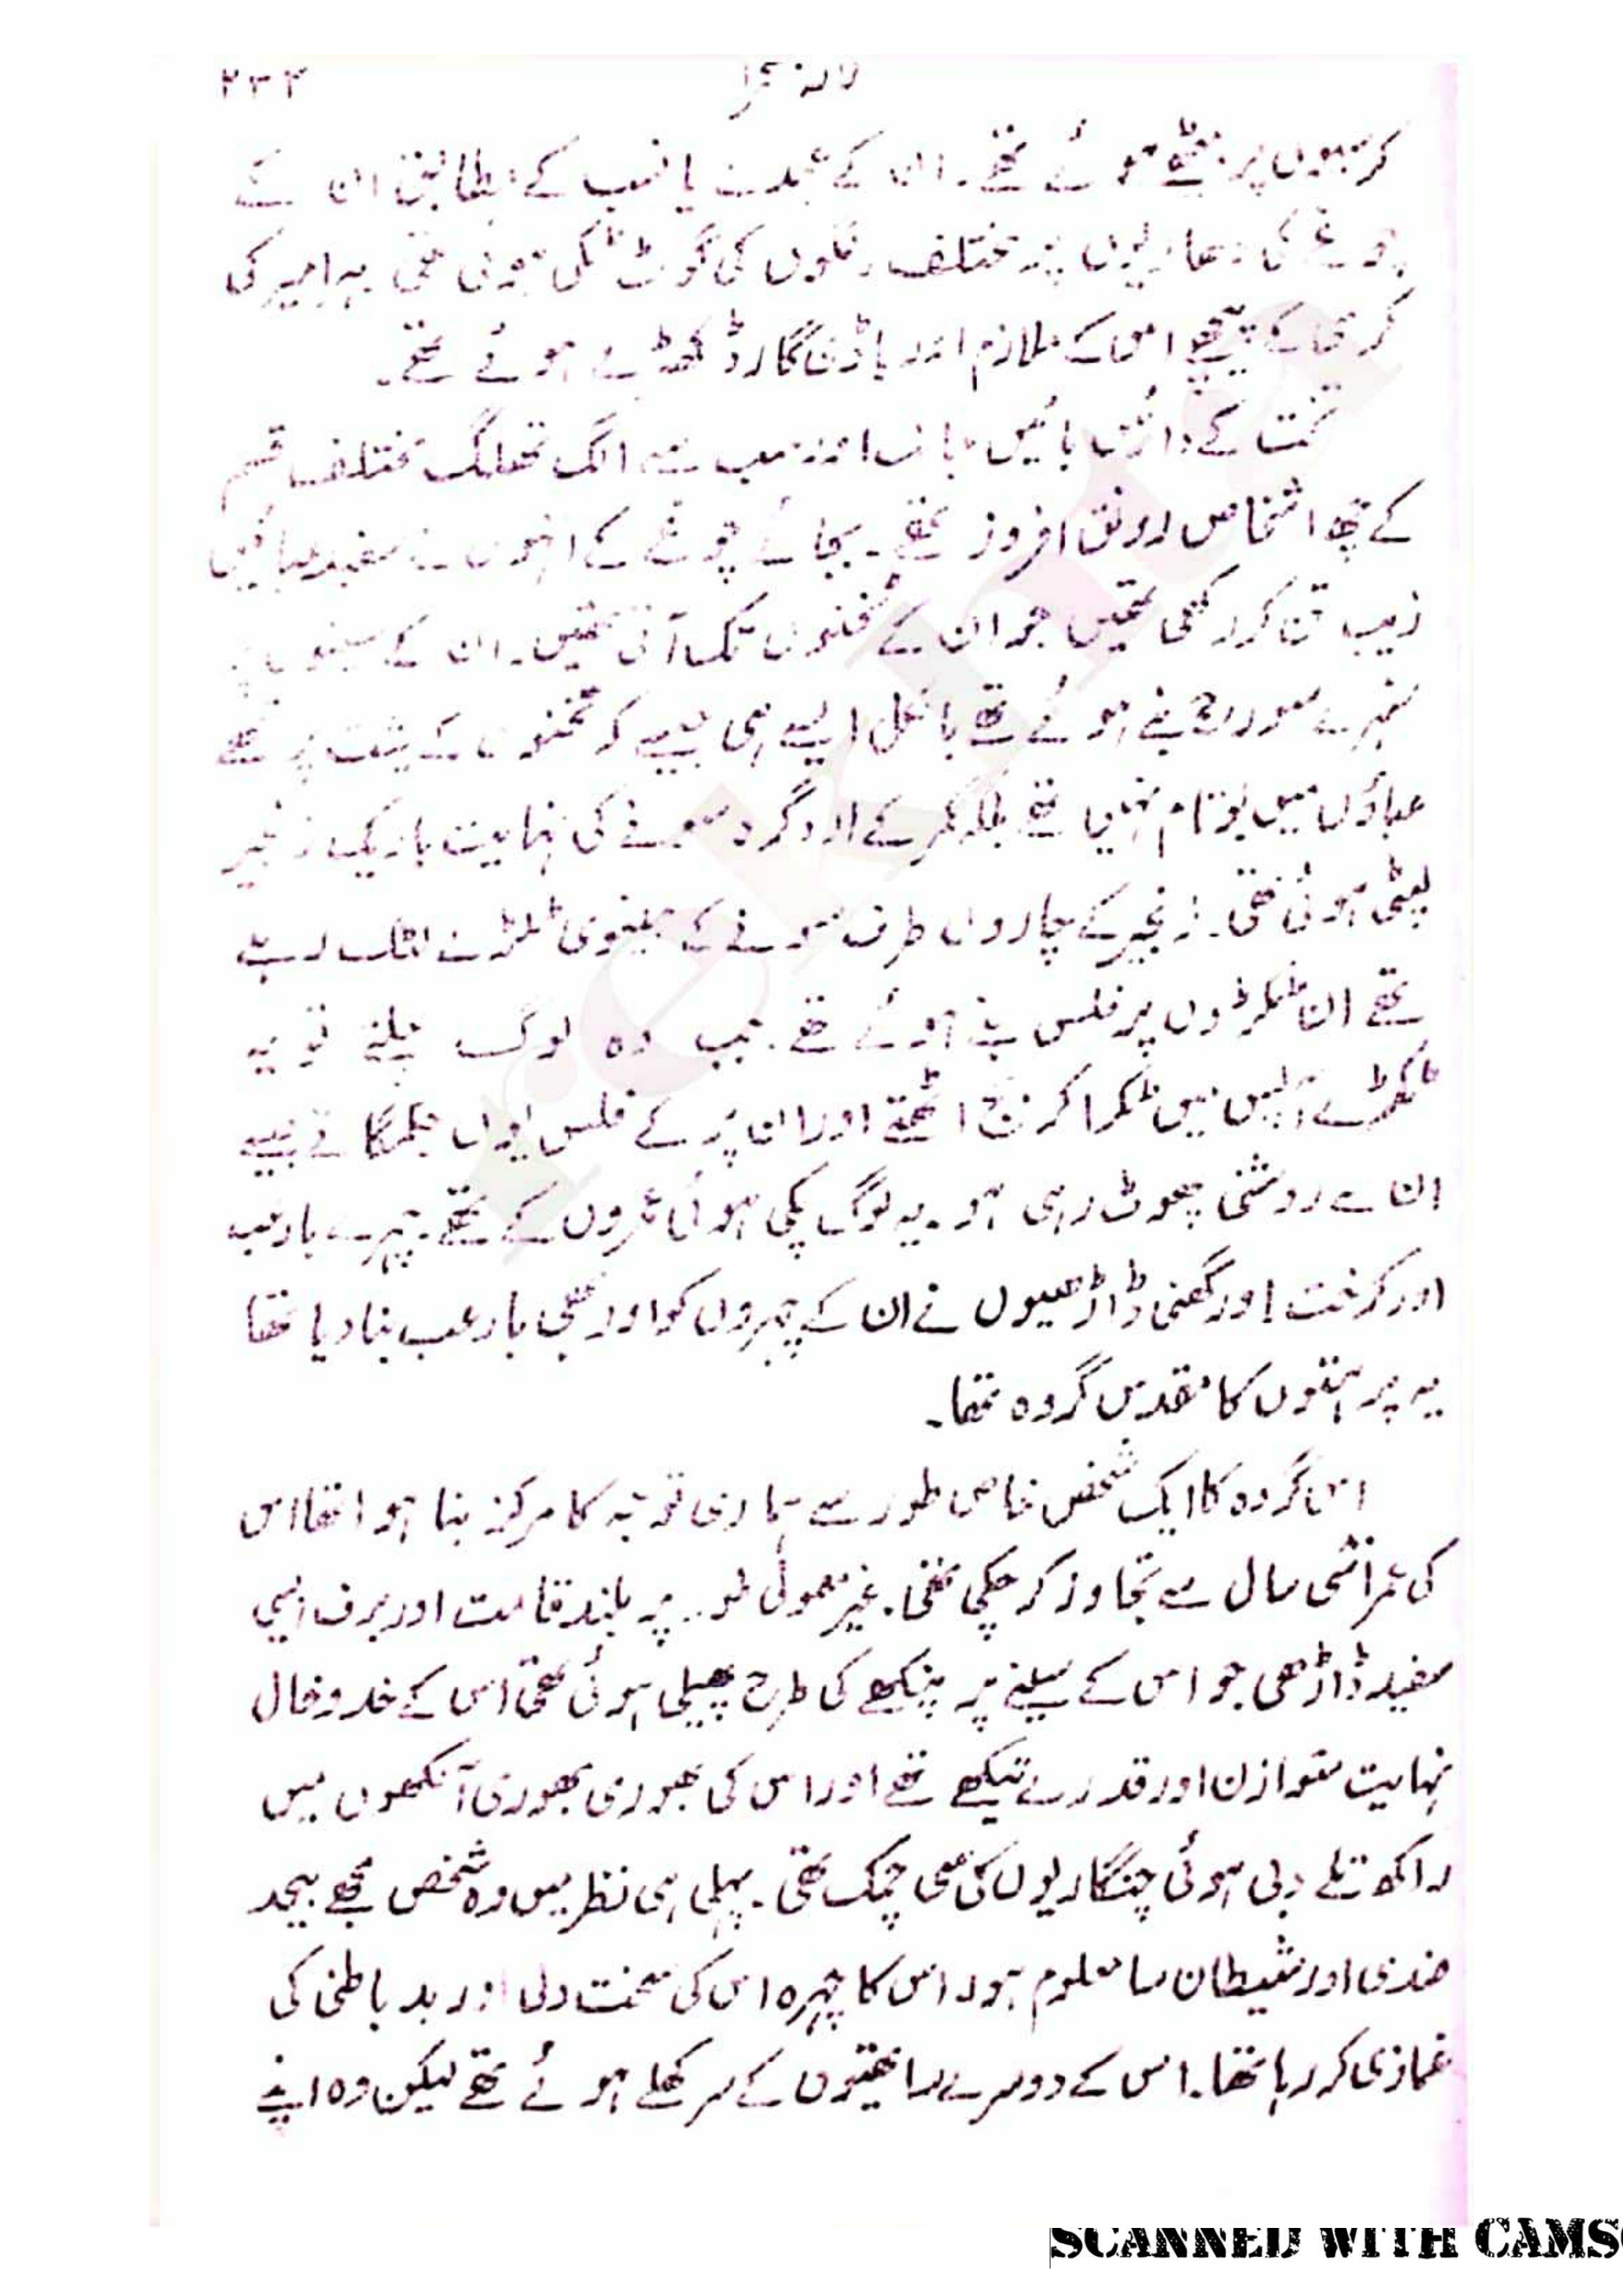 لالہ صحرا ۲۳۳
کرسیوں پر بیٹھے ہوئے تھے۔ ان کے عہدے یا نسب کے مطابق ان کے
چوغے کی دھاریوں پر مختلف رنگوں کی گوٹ ٹکی ہوئی تھی ہر امیر کی
کرسی کے پیچھے اس کے ملازم اور باڈی گارڈ کھڑے ہوئے تھے۔
تخت کے دائیں بائیں جانب اور سب سے الگ تھلگ مختلف قسم
کے چھ اشخاص رونق افروز تھے۔ بجائے چوغے کے انہوں نے سفید عبائیں
زیب تن کر رکھی تھیں جو ان کے ٹخنوں تک آتی تھیں۔ ان کے سینوں پر
سنہرے سورج بنے ہوئے تھے بالکل ایسے ہی جیسے کہ تختوں کے پشت پر تھے
عباؤں میں بوتام نہیں تھے بلکہ کمر کے ارد گرد سونے کی نہایت باریک زنجیر
لپٹی ہوئی تھی۔ زنجیر کے چاروں طرف سونے کے بیضوی ٹکڑے لٹک رہے
تھے ان ٹکڑوں پر فلس بنے ہوئے تھے۔ جب وہ لوگ چلتے تو یہ
ٹکڑے آپس میں ٹکرا کر بج اٹھتے اور ان پر کے فلس یوں جگمگاتے جیسے
ان سے روشنی پھوٹ رہی ہو۔ یہ لوگ پکی ہوئی عمروں کے تھے۔ چہرے بارعب
اور کرخت اور گھنی ڈاڑھیوں نے ان کے چہروں کو اور بھی بارعب بنا دیا تھا
یہ پروہتوں کا مقدس گروہ تھا۔
اس گروہ کا ایک شخص خاص طور سے ہماری توجہ کا مرکز بنا ہوا تھا اس
کی عمر اسی سال سے تجاوز کر چکی تھی۔ غیر معمولی طور پر بلند قامت اور برف ایسی
سفید ڈاڑھی جو اس کے سینے پر پنکھے کی طرح پھیلی ہوئی تھی اس کے خد و خال
نہایت متوازن اور قدرے تیکھے تھے اور اس کی بھوری بھوری آنکھوں میں
راکھ تلے دبی ہوئی چنگاریوں کی سی چمک تھی۔ پہلی ہی نظر میں وہ شخص مجھے بیحد
ضدی اور شیطان سا معلوم ہوا۔ اس کا چہرہ اس کی سخت دلی اور بد باطنی کی
غمازی کر رہا تھا۔ اس کے دوسرے ساتھیوں کے سر کھلے ہوئے تھے لیکن وہ اپنے
rekhta
SCANNED WITH CAMS